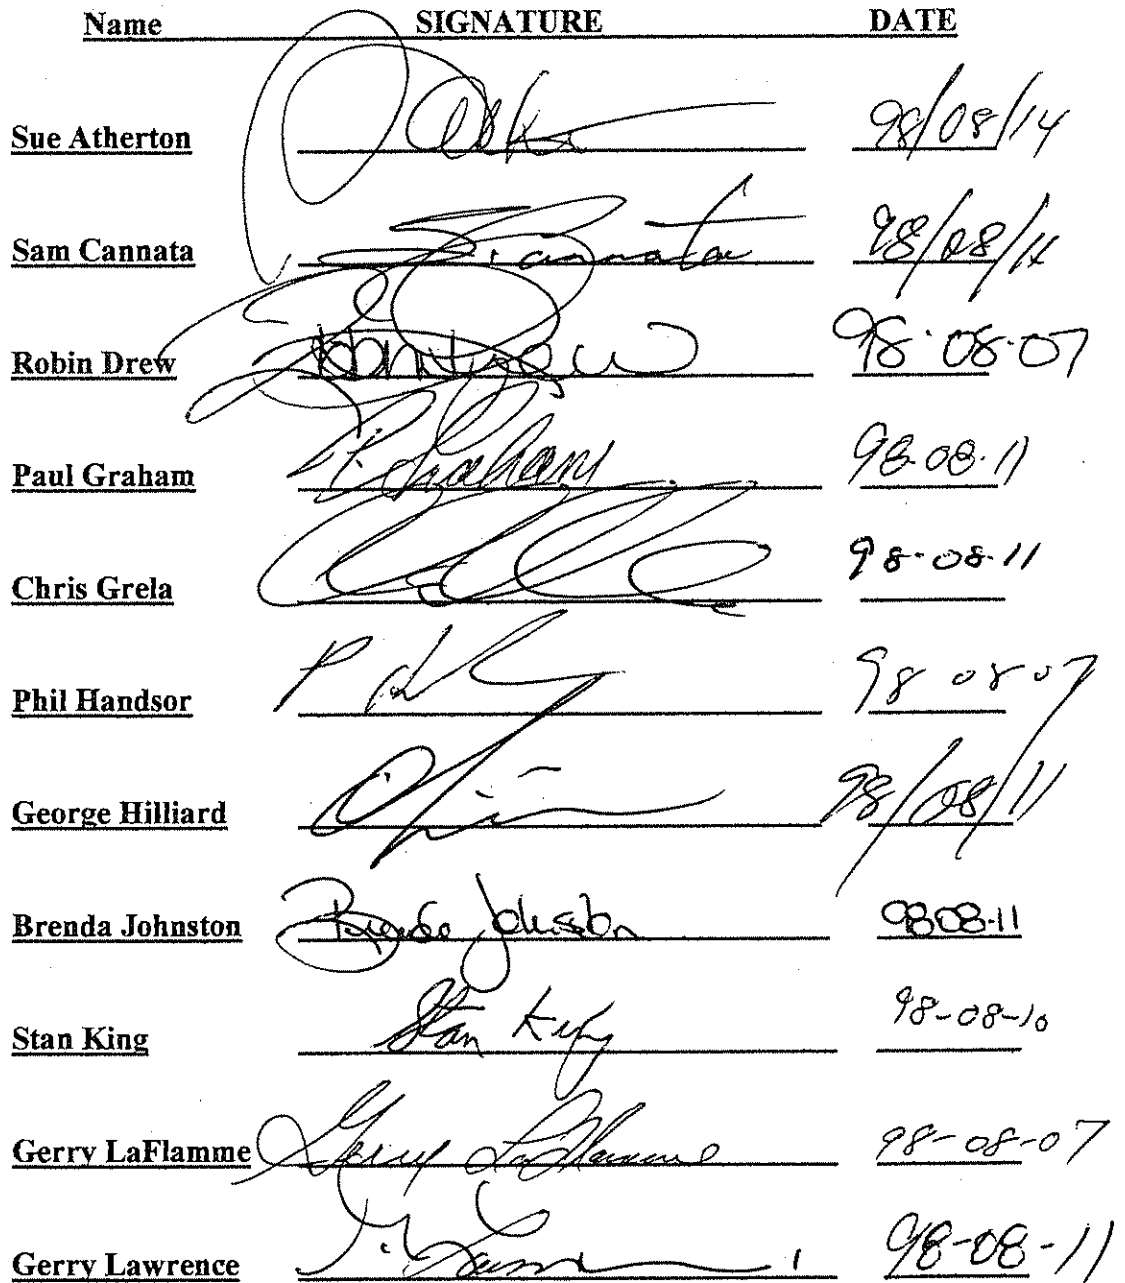 Name SIGNATURE DATE
Sue Atherton 98/08/14
Sam Cannata S. Cannata 98/08/11
Robin Drew Robin Drew 98·08·07
Paul Graham P. Graham 98·08·11
Chris Grela 98-08-11
Phil Handsor 98 08 07
George Hilliard 98/08/11
Brenda Johnston Brenda Johnston 9808-11
Stan King Stan King 98-08-10
Gerry LaFlamme Gerry LaFlamme 98-08-07
Gerry Lawrence 98-08-11